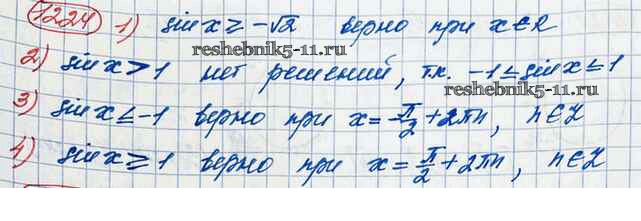 1224 1) sin x ≥ -√2 верно при x ∈ R
reshebnik5-11.ru
2) sin x > 1 нет решений, т.к. -1 ≤ sin x ≤ 1
reshebnik5-11.ru
3) sin x ≤ -1 верно при x = -π/2 + 2πn, n ∈ Z
4) sin x ≥ 1 верно при x = π/2 + 2πn, n ∈ Z
reshebnik5-11.ru